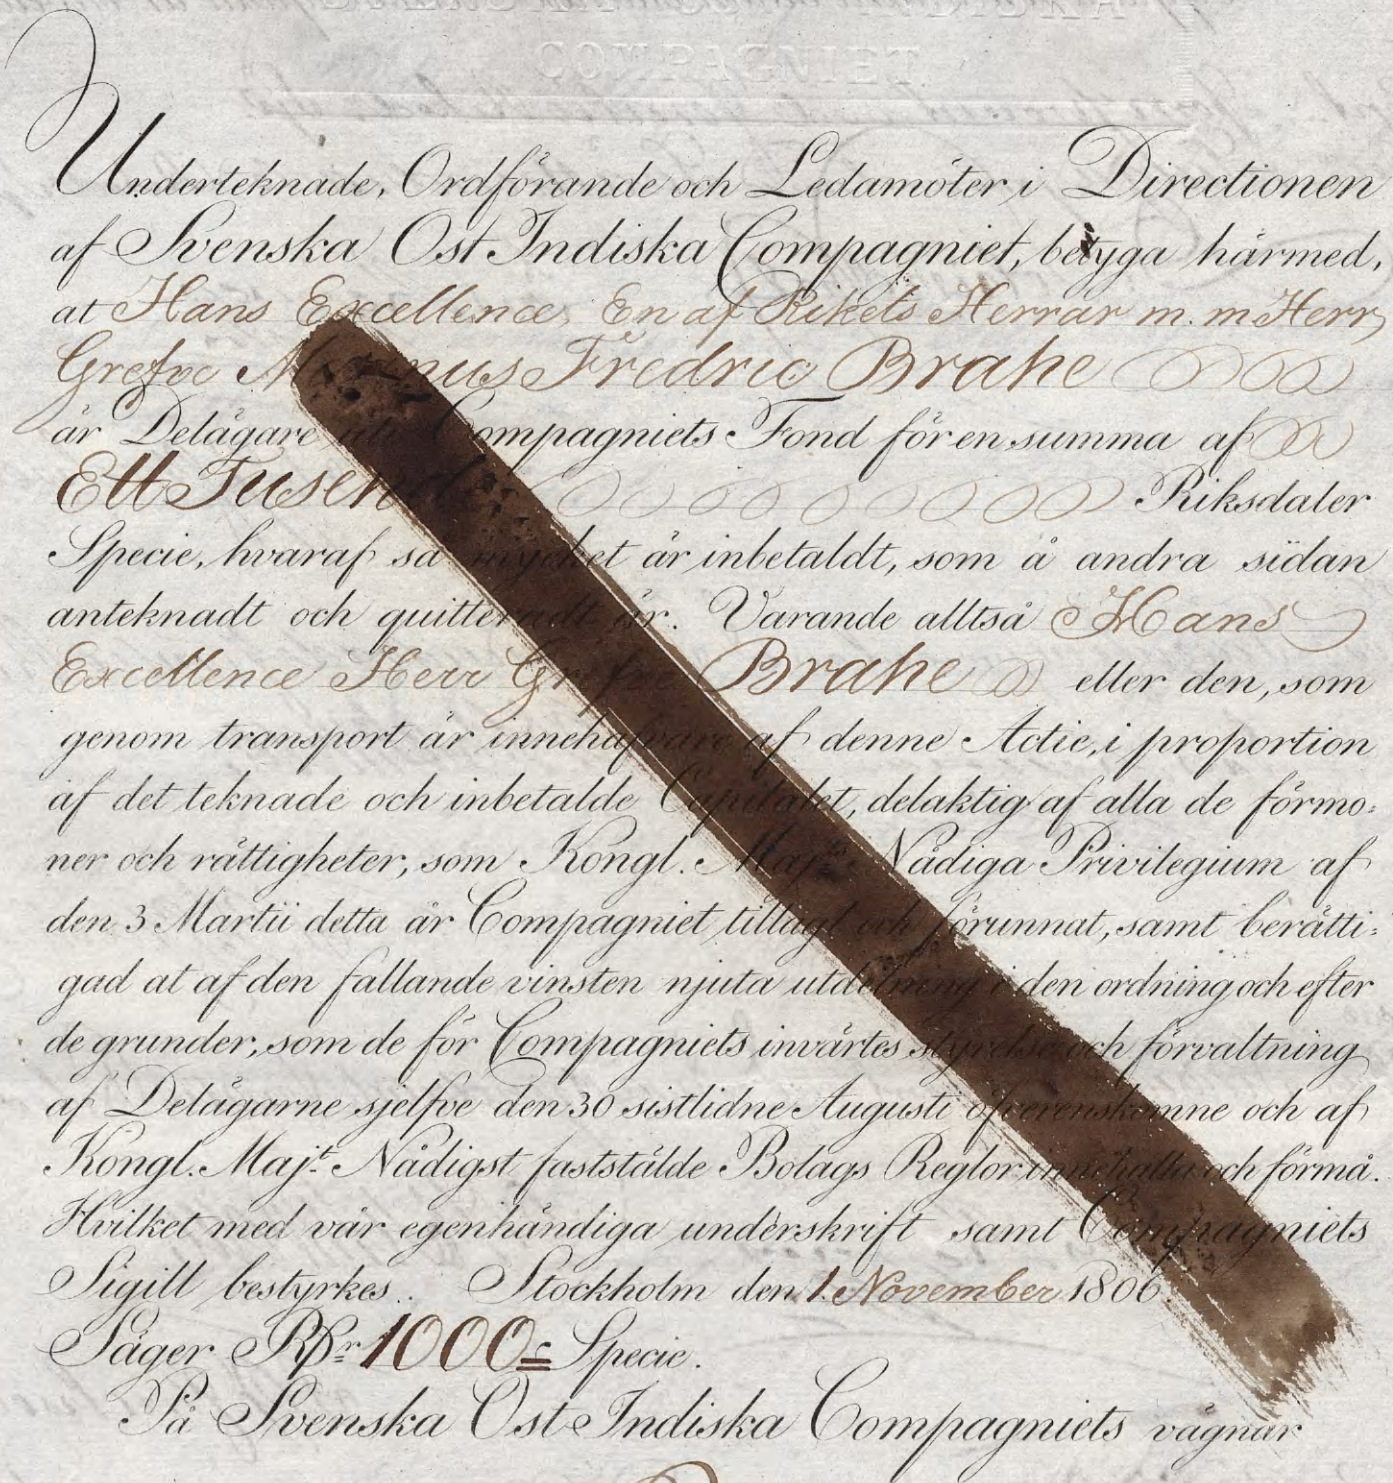 COMPAGNIET.
Underteknade, Ordförande och Ledamöter i Directionen
af Svenska Ost Indiska Compagniet, betyga härmed,
at Hans Excellence, En af Rikets Herrar m. m Herr
Grefve Magnus Fredric Brahe
är Delägare uti Compagniets Fond för en summa af
Ett Tusend Riksdaler
Specie, hvaraf så mycket är inbetaldt, som å andra sidan
anteknadt och quitteradt är. Varande alltså Hans
Excellence Herr Grefve Brahe eller den, som
genom transport är innehafvare af denne Actie, i proportion
af det teknade och inbetalde Capitalet, delaktig af alla de förmo:
ner och rättigheter, som Kongl. Maj:ts Nådiga Privilegium af
den 3 Martii detta år Compagniet tillagt och förunnat, samt berätti:
gad at af den fallande vinsten njuta utdelning i den ordning och efter
de grunder, som de för Compagniets invärtes styrelse och förvaltning
af Delägarne sjelfve den 30 sistlidne Augusti öfverenskomne och af
Kongl. Maj:t Nådigst fastställde Bolags Reglor innehålla och förmå.
Hvilket med vår egenhändiga underskrift samt Compagniets
Sigill bestyrkes. Stockholm den 1. November 1806.
Säger RDr 1000 Specie.
På Svenska Ost Indiska Compagniets vägnar